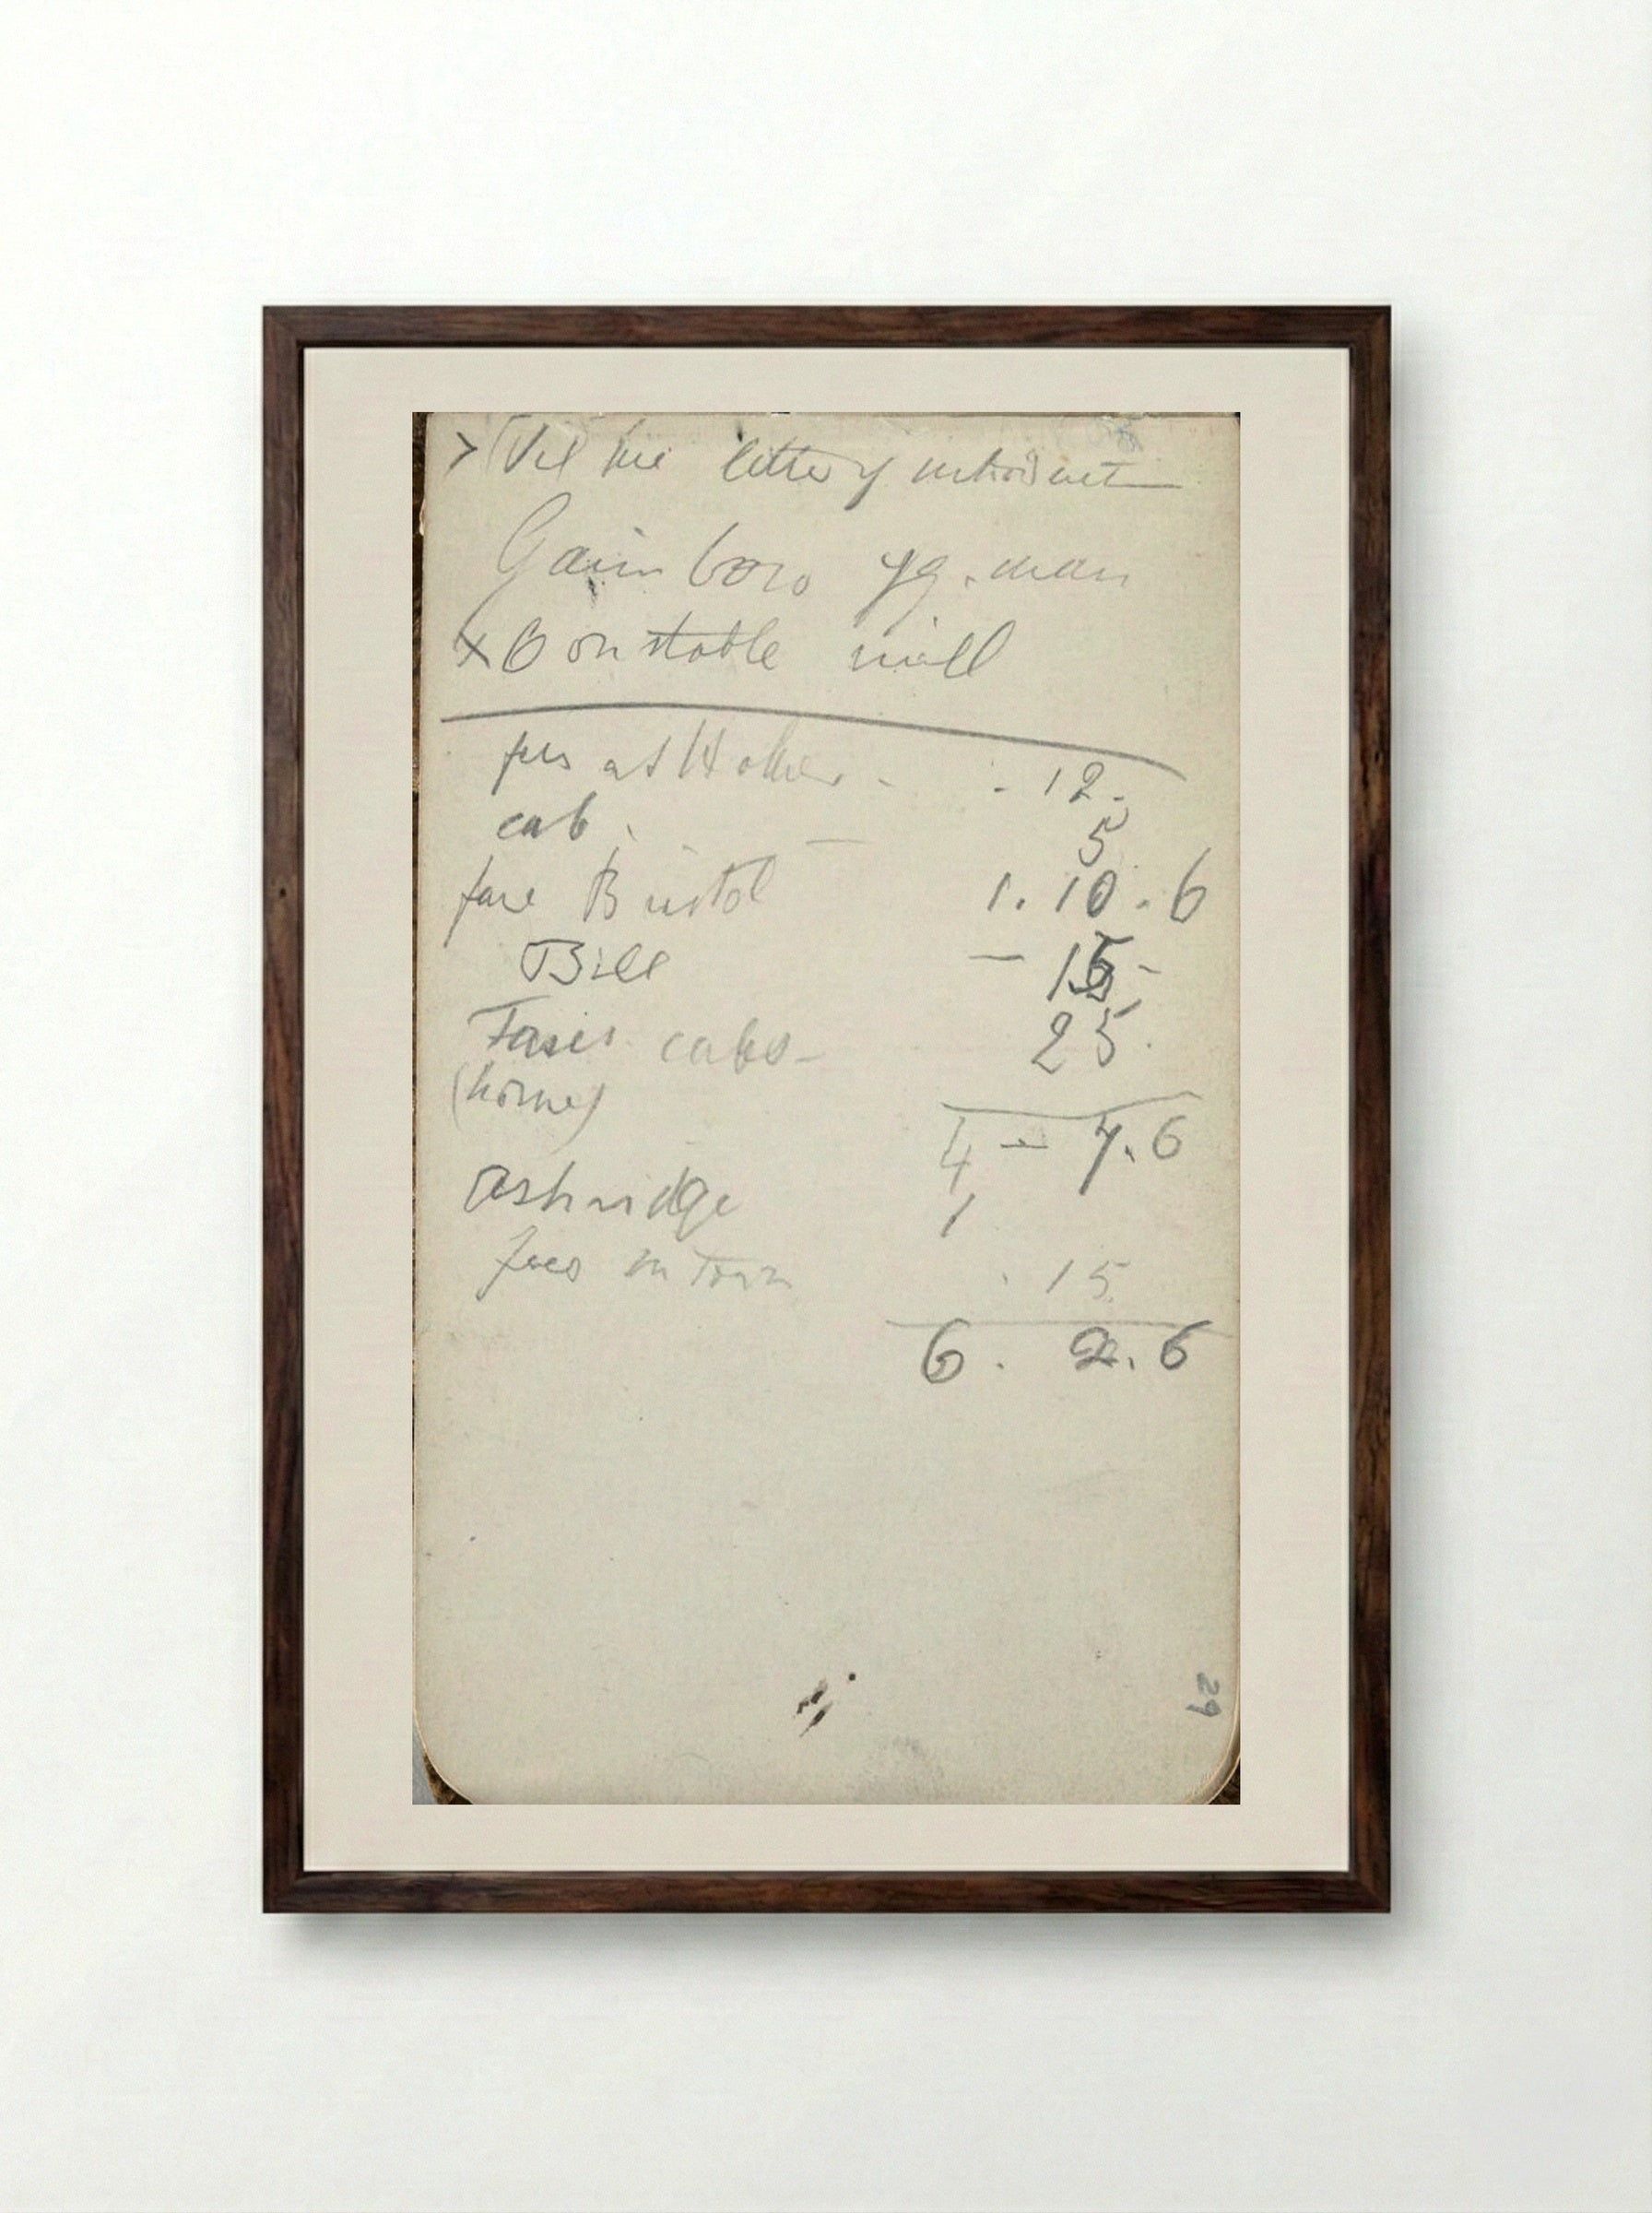 letter of introduct
Gainboro yg. man
x Constable mill
fees at - . 12.
cab. - 5
fare Bristol 1. 10. 6
Bill - 15 -
Taxis cabs - 25.
(home)
4 - 7. 6
Ashridge 1
fees in Town . 15
6. 2. 6
29